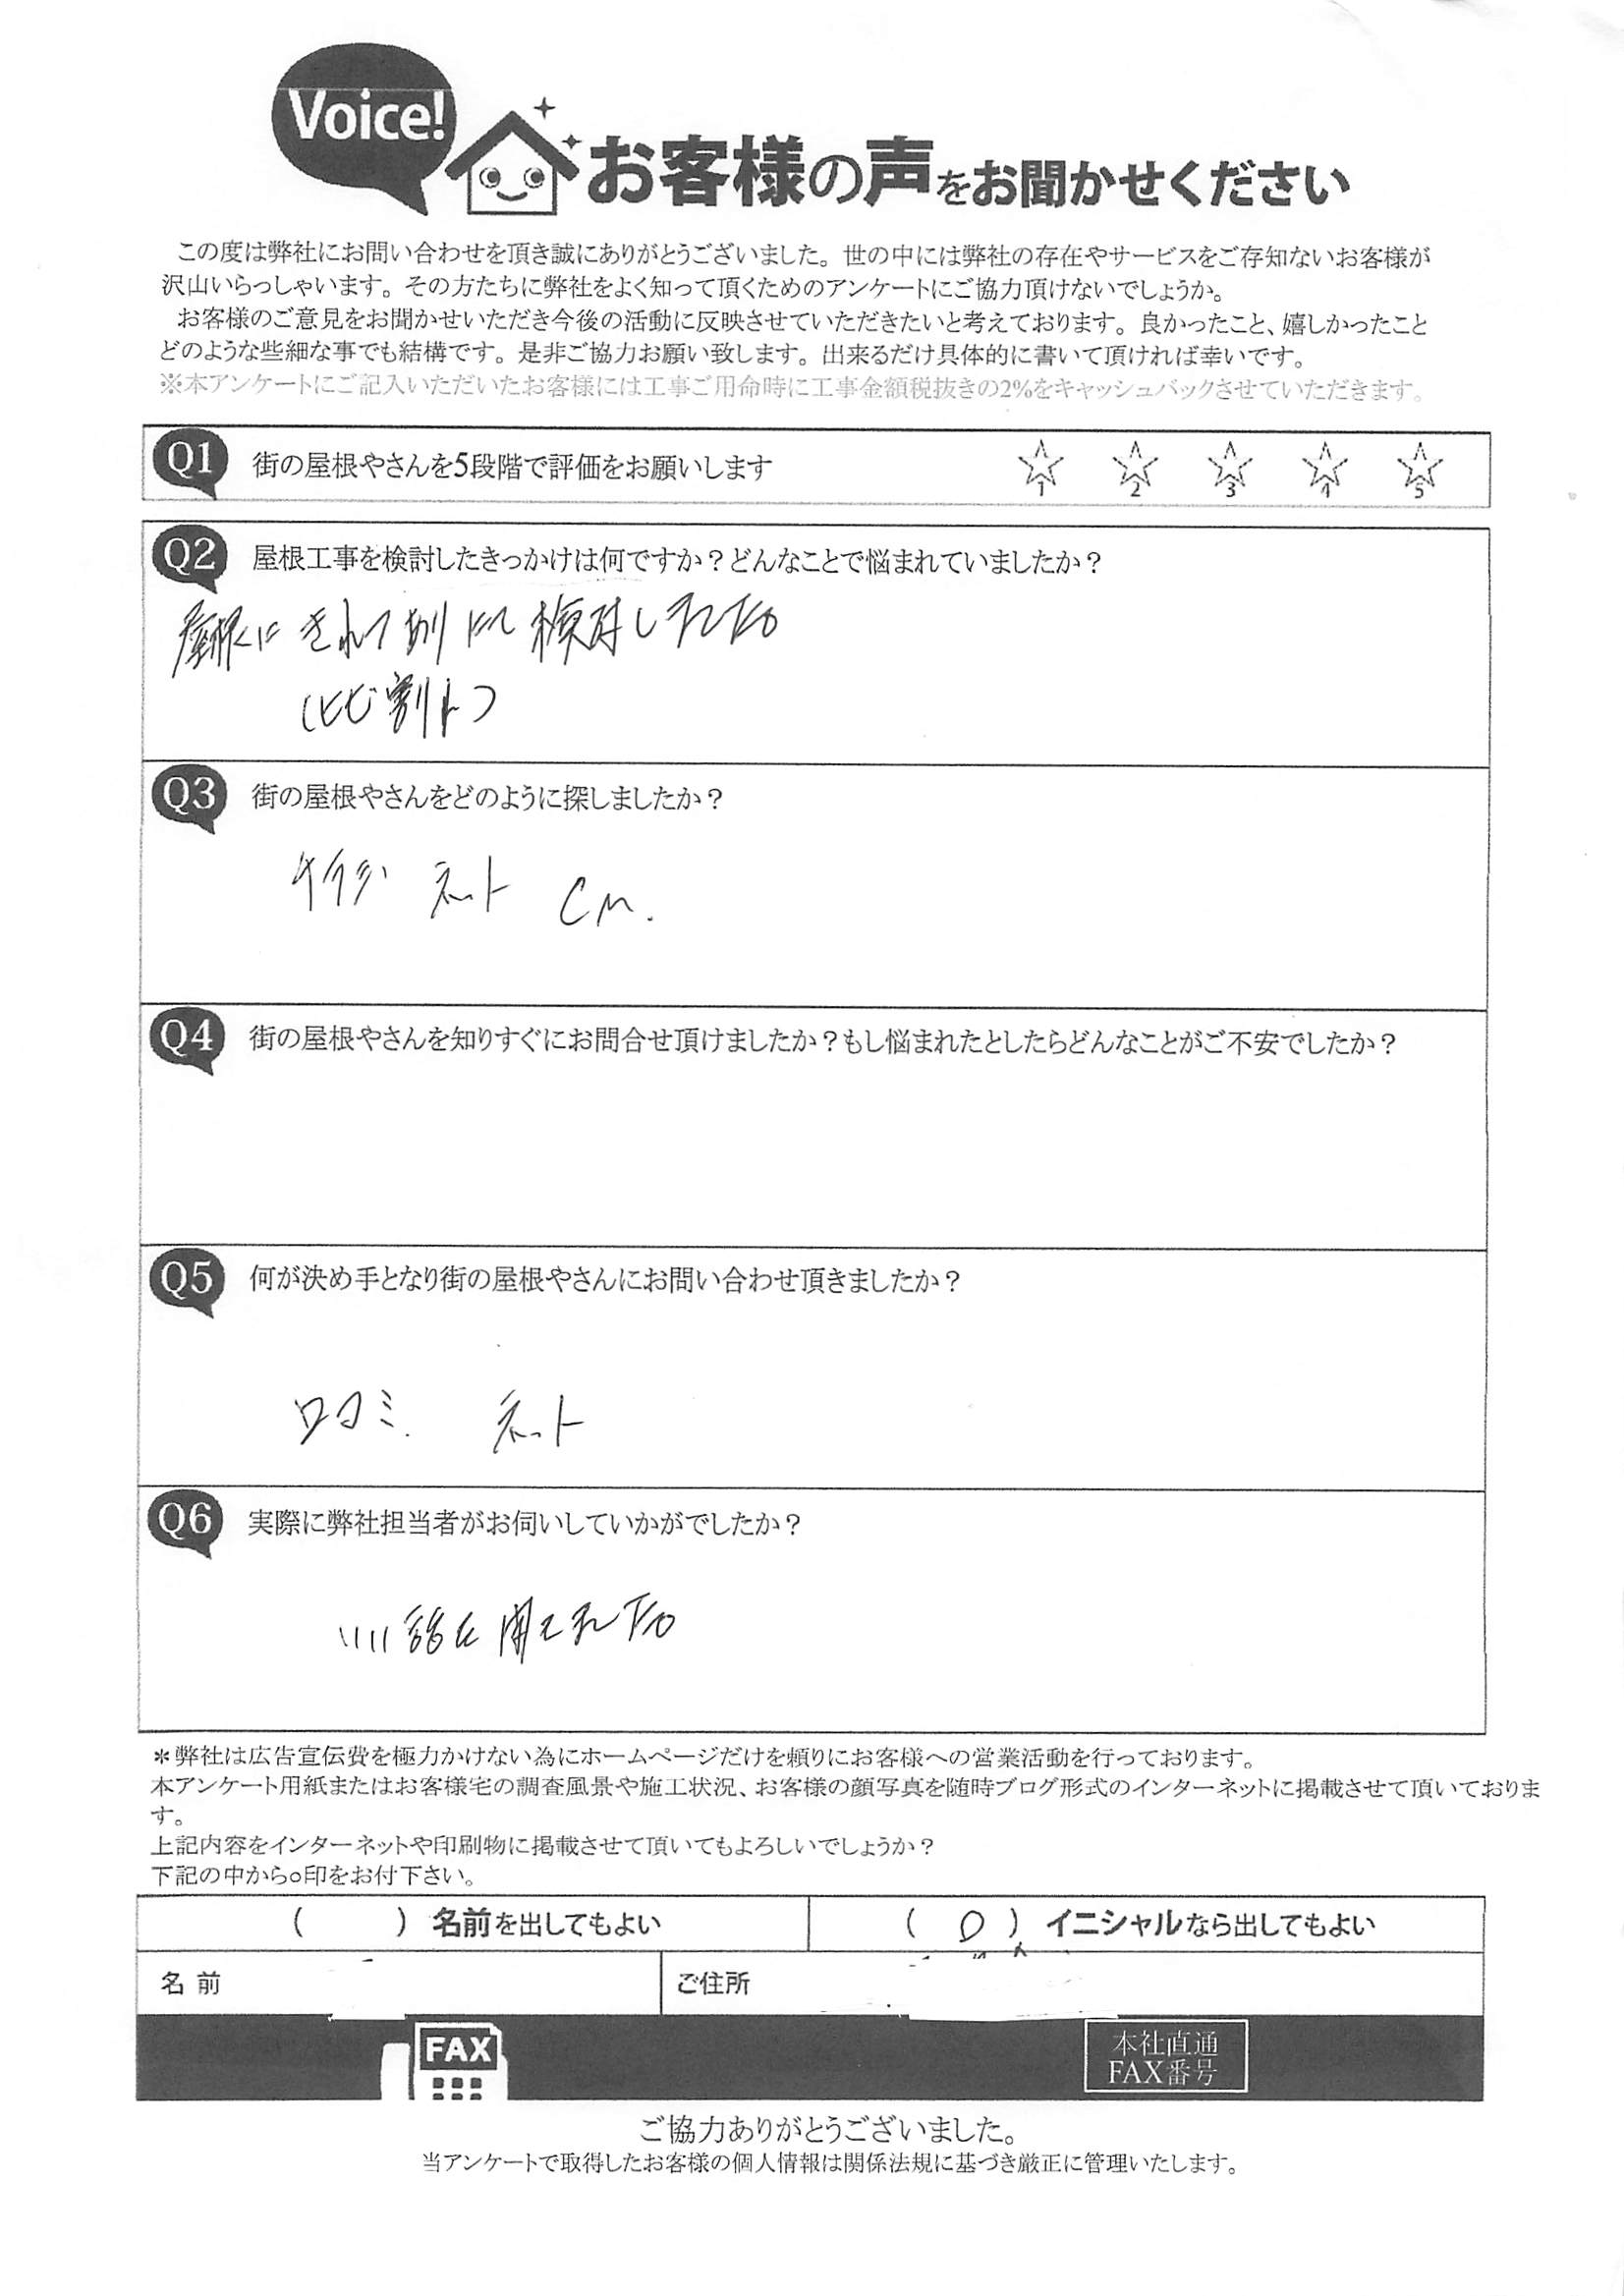 Voice!
お客様の声をお聞かせください
この度は弊社にお問い合わせを頂き誠にありがとうございました。世の中には弊社の存在やサービスをご存知ないお客様が
沢山いらっしゃいます。その方たちに弊社をよく知って頂くためのアンケートにご協力頂けないでしょうか。
お客様のご意見をお聞かせいただき今後の活動に反映させていただきたいと考えております。良かったこと、嬉しかったこと
どのような些細な事でも結構です。是非ご協力お願い致します。出来るだけ具体的に書いて頂ければ幸いです。
※本アンケートにご記入いただいたお客様には工事ご用命時に工事金額税抜きの2%をキャッシュバックさせていただきます。
Q1 街の屋根やさんを5段階で評価をお願いします 1 2 3 4 5
Q2 屋根工事を検討したきっかけは何ですか？どんなことで悩まれていましたか？
屋根に きれつ あり 検討しました
(ヒビ割れ)
Q3 街の屋根やさんをどのように探しましたか？
チラシ ネット CM.
Q4 街の屋根やさんを知りすぐにお問合せ頂けましたか？もし悩まれたとしたらどんなことがご不安でしたか？
Q5 何が決め手となり街の屋根やさんにお問い合わせ頂きましたか？
口コミ. ネット
Q6 実際に弊社担当者がお伺いしていかがでしたか？
いい話を聞えました
＊弊社は広告宣伝費を極力かけない為にホームページだけを頼りにお客様への営業活動を行っております。
本アンケート用紙またはお客様宅の調査風景や施工状況、お客様の顔写真を随時ブログ形式のインターネットに掲載させて頂いておりま
す。
上記内容をインターネットや印刷物に掲載させて頂いてもよろしいでしょうか？
下記の中から○印をお付下さい。
(　) 名前を出してもよい (○) イニシャルなら出してもよい
名前 ご住所
FAX
本社直通
FAX番号
ご協力ありがとうございました。
当アンケートで取得したお客様の個人情報は関係法規に基づき厳正に管理いたします。